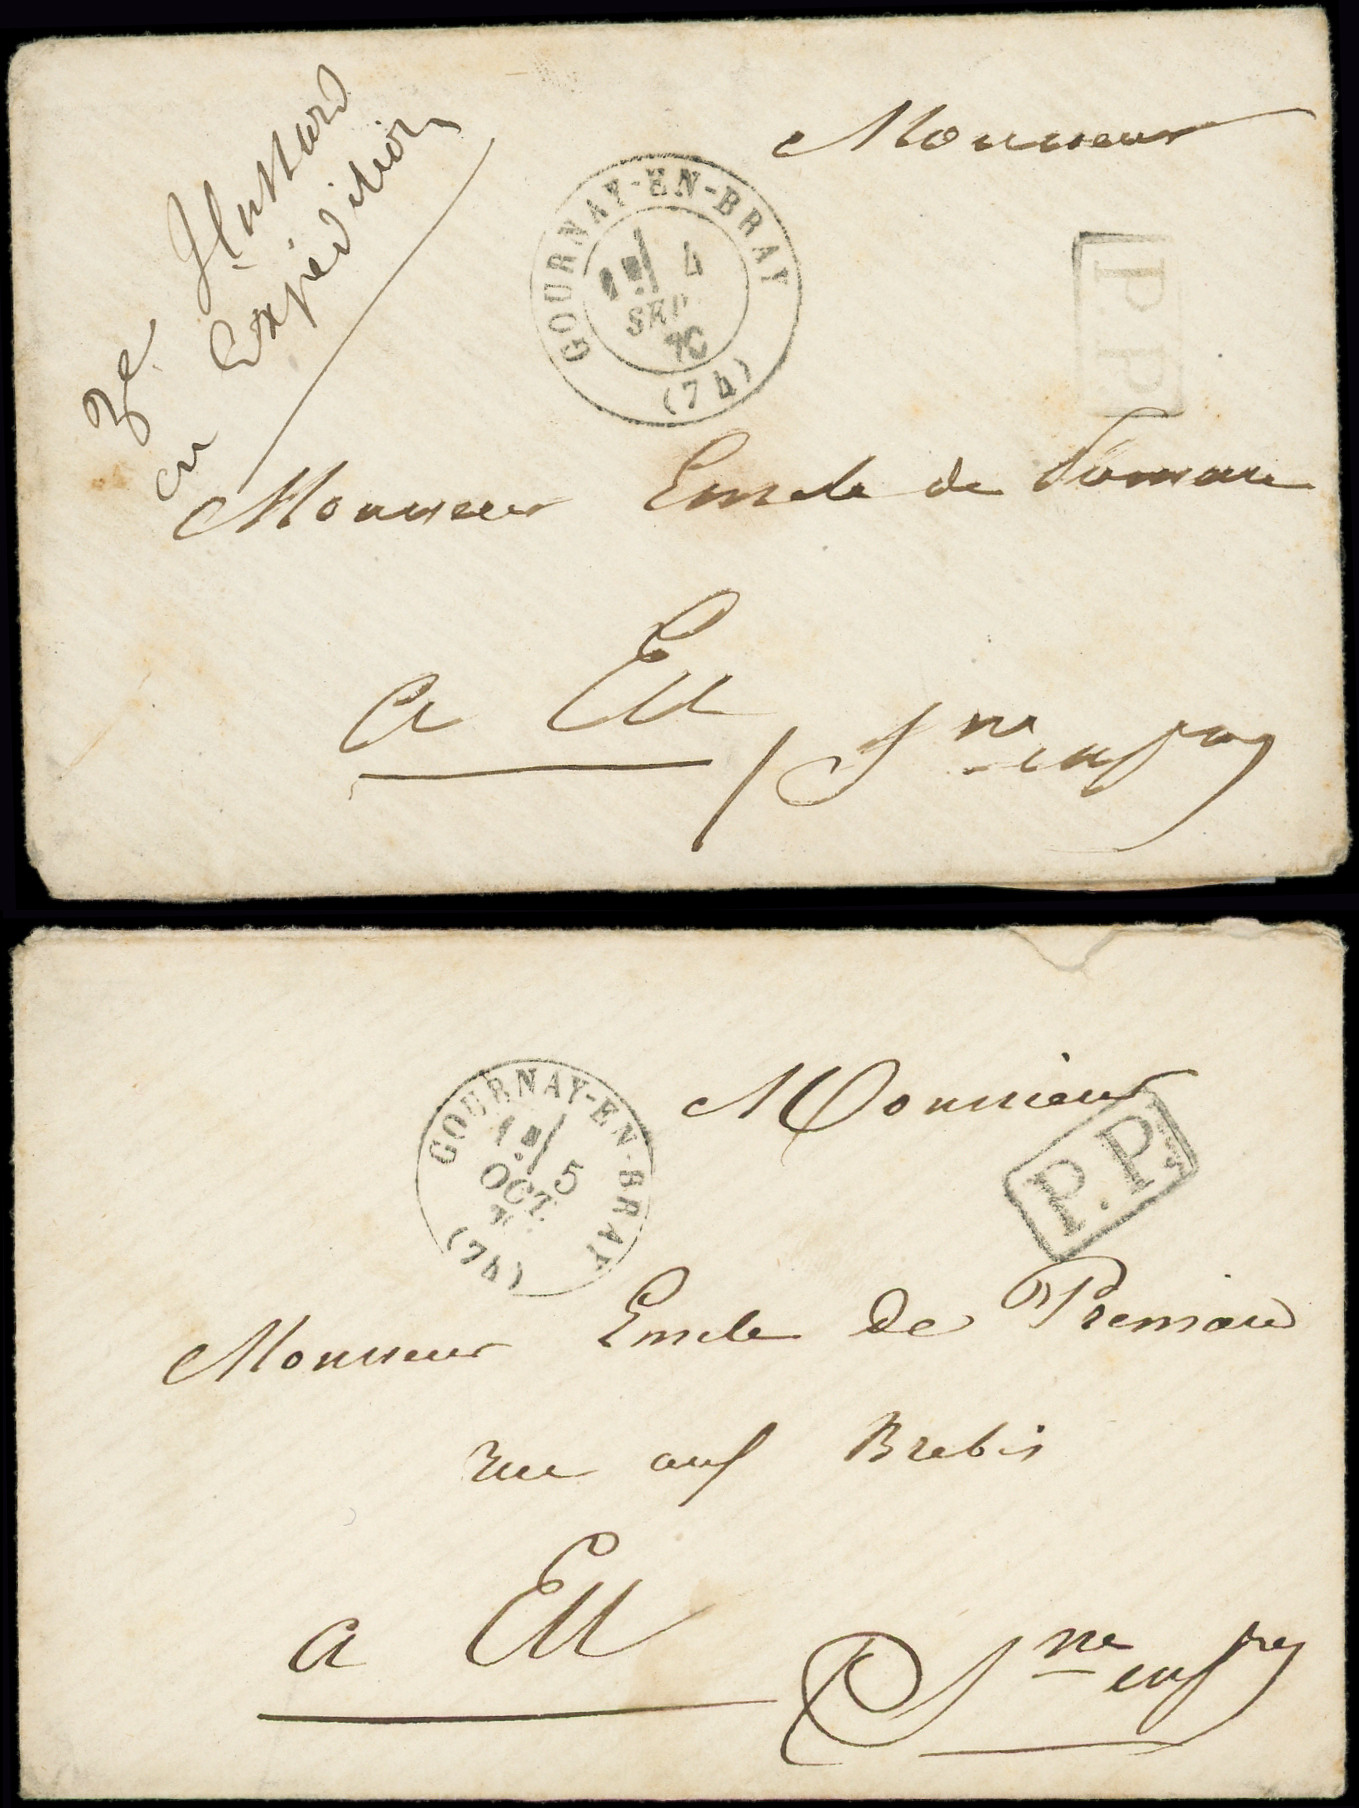 3e Hussard
en Expédition
Monsieur
GOURNAY-EN-BRAY
1E/ 4
SEPT
70
(74)
P.P.
Monsieur Emile de
a EU
Sne infre
GOURNAY-EN-BRAY
1E/ 5
OCT.
(74)
Monsieur
P.P.
Monsieur Emile De
rue aux Brebis
a EU
Sne infre